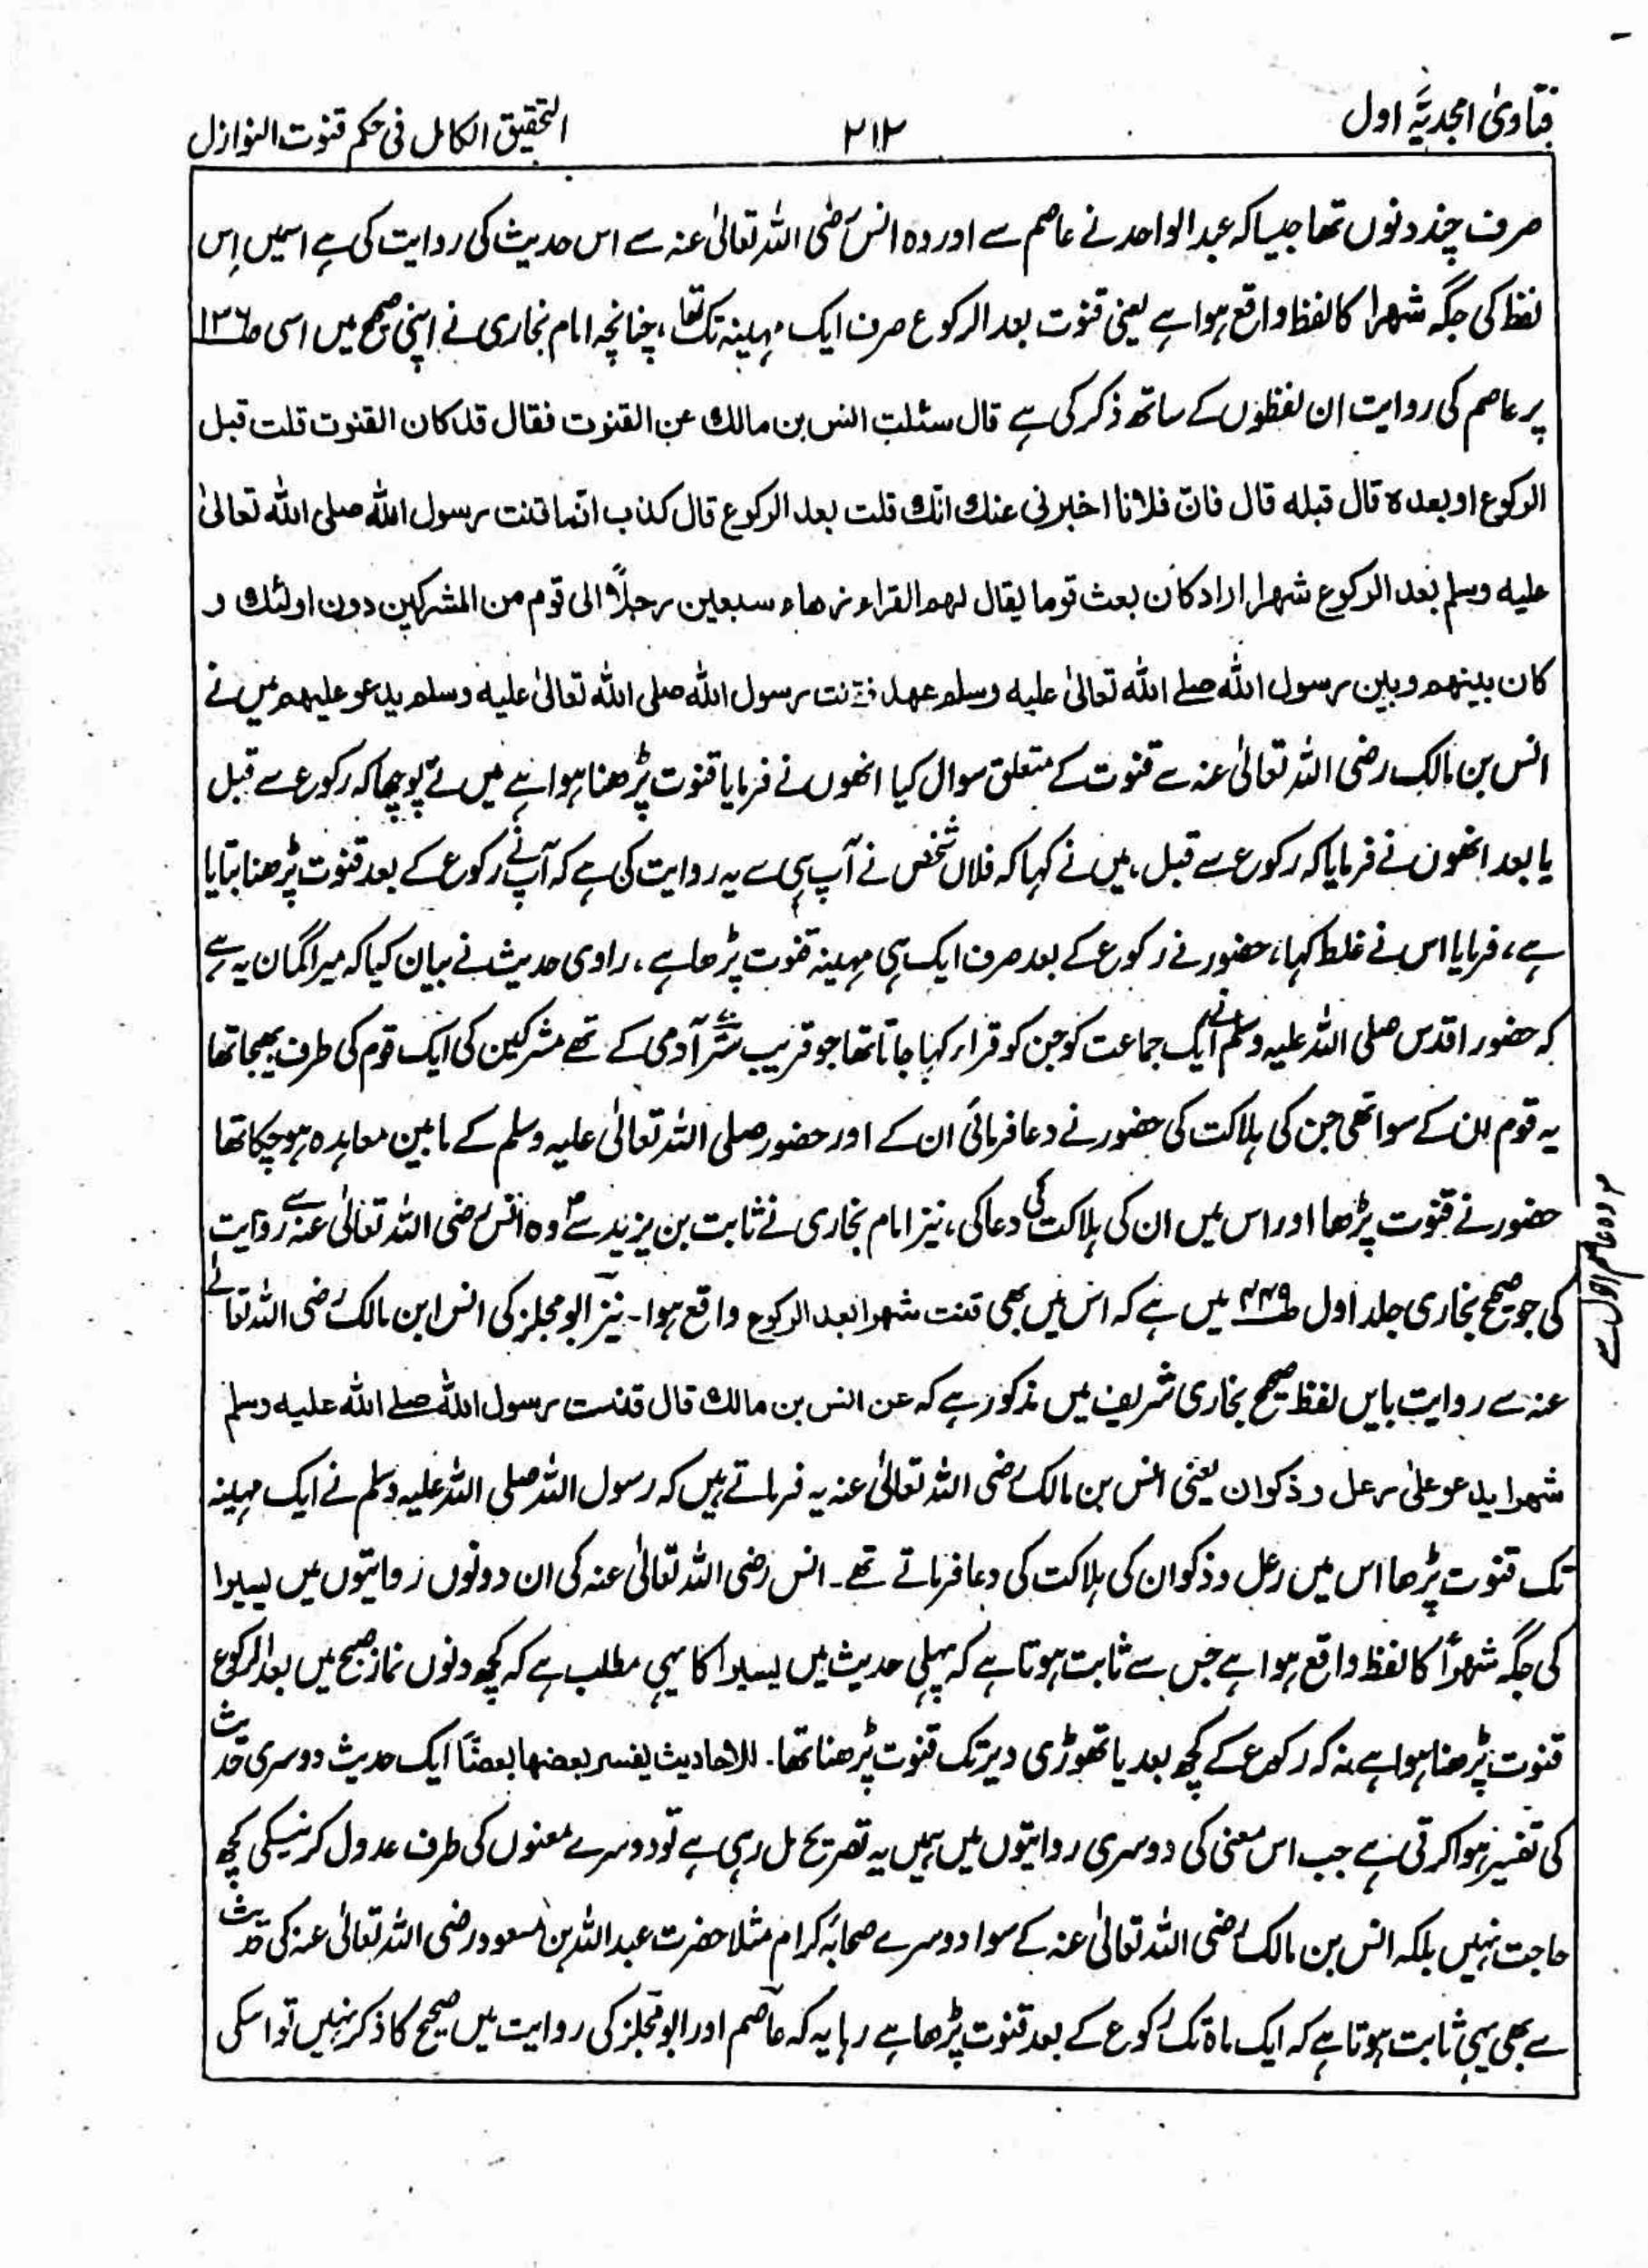 فتاویٰ امجدیہ اول
۲۱۲
التحقیق الکامل فی حکم قنوت النوازل
صرف چند دنوں تھا جیسا کہ عبد الواحد نے عاصم سے اور وہ انس رضی اللہ تعالیٰ عنہ سے اس حدیث کی روایت کی ہے اسمیں اس
لفظ کی جگہ شھرا کا لفظ واقع ہوا ہے یعنی قنوت بعد الرکوع صرف ایک مہینہ تک تھا، چنانچہ امام بخاری نے اپنی صحیح میں اسی ص۱۳۶
پر عاصم کی روایت ان لفظوں کے ساتھ ذکر کی ہے قال سئلت انس بن مالك عن القنوت فقال قد کان القنوت قلت قبل
الرکوع او بعدہ قال قبله قال فانّ فلانا اخبرنی عنك انّك قلت بعد الرکوع قال کذب انّما قنت رسول اللہ صلی اللہ تعالیٰ
علیه وسلم بعد الرکوع شھرا اراہ کان بعث قوما یقال لھم القراء زھاء سبعین رجلاً الی قوم من المشرکین دون اولئك و
کان بینھم و بین رسول اللہ صلے اللہ تعالیٰ علیه وسلم عھد فقنت رسول اللہ صلی اللہ تعالیٰ علیه وسلم یدعو علیھم میں نے
انس بن مالک رضی اللہ تعالیٰ عنہ سے قنوت کے متعلق سوال کیا انھوں نے فرمایا قنوت پڑھنا ہوا ہے میں نے پوچھا کہ رکوع سے قبل
یا بعد انھوں نے فرمایا کہ رکوع سے قبل، میں نے کہا کہ فلاں شخص نے آپ ہی سے یہ روایت کی ہے کہ آپ نے رکوع کے بعد قنوت پڑھنا بتایا
ہے، فرمایا اس نے غلط کہا، حضور نے رکوع کے بعد صرف ایک ہی مہینہ قنوت پڑھا ہے، راوی حدیث نے بیان کیا کہ میرا گمان یہ ہے
کہ حضور اقدس صلی اللہ علیہ وسلم نے ایک جماعت کو جن کو قراء کہا جاتا تھا جو قریب ستر آدمی کے تھے مشرکین کی ایک قوم کی طرف بھیجا تھا
یہ قوم ان کے سوا تھی جن کی ہلاکت کی حضور نے دعا فرمائی ان کے اور حضور صلی اللہ تعالیٰ علیہ وسلم کے مابین معاہدہ ہو چکا تھا
حضور نے قنوت پڑھا اور اس میں ان کی ہلاکت کی دعا کی، نیز امام بخاری نے ثابت بن یزید سے وہ انس رضی اللہ تعالیٰ عنہ سے روایت
وہ عاصم احول سے
کی جو صحیح بخاری جلد اول ص۴۴۹ میں ہے کہ اس میں بھی قنت شھرا بعد الرکوع واقع ہوا۔ نیز ابو مجلز کی انس ابن مالک رضی اللہ تعالیٰ
عنہ سے روایت بایں لفظ صحیح بخاری شریف میں مذکور ہے کہ عن انس بن مالك قال قنت رسول اللہ صلے اللہ علیه وسلم
شھرا یدعو علیٰ رعل و ذکوان یعنی انس بن مالک رضی اللہ تعالیٰ عنہ یہ فرماتے ہیں کہ رسول اللہ صلی اللہ علیہ وسلم نے ایک مہینہ
تک قنوت پڑھا اس میں رعل و ذکوان کی ہلاکت کی دعا فرماتے تھے۔ انس رضی اللہ تعالیٰ عنہ کی ان دونوں روایتوں میں یسیرا
کی جگہ شھراً کا لفظ واقع ہوا ہے جس سے ثابت ہوتا ہے کہ پہلی حدیث میں یسیرا کا یہی مطلب ہے کہ کچھ دنوں نماز صبح میں بعد الرکوع
قنوت پڑھنا ہوا ہے نہ کہ رکوع کے کچھ بعد یا تھوڑی دیر تک قنوت پڑھنا تھا۔ للاحادیث یفسر بعضھا بعضاً ایک حدیث دوسری حدیث
کی تفسیر ہوا کرتی ہے جب اس معنی کی دوسری روایتوں میں ہمیں یہ تصریح مل رہی ہے تو دوسرے معنوں کی طرف عدول کرنیکی کچھ
حاجت نہیں بلکہ انس بن مالک رضی اللہ تعالیٰ عنہ کے سوا دوسرے صحابۂ کرام مثلا حضرت عبد اللہ بن مسعود رضی اللہ تعالیٰ عنہ کی حدیث
سے بھی یہی ثابت ہوتا ہے کہ ایک ماہ تک رکوع کے بعد قنوت پڑھا ہے رہا یہ کہ عاصم اور ابو مجلز کی روایت میں صحیح کا ذکر نہیں تو اسکی